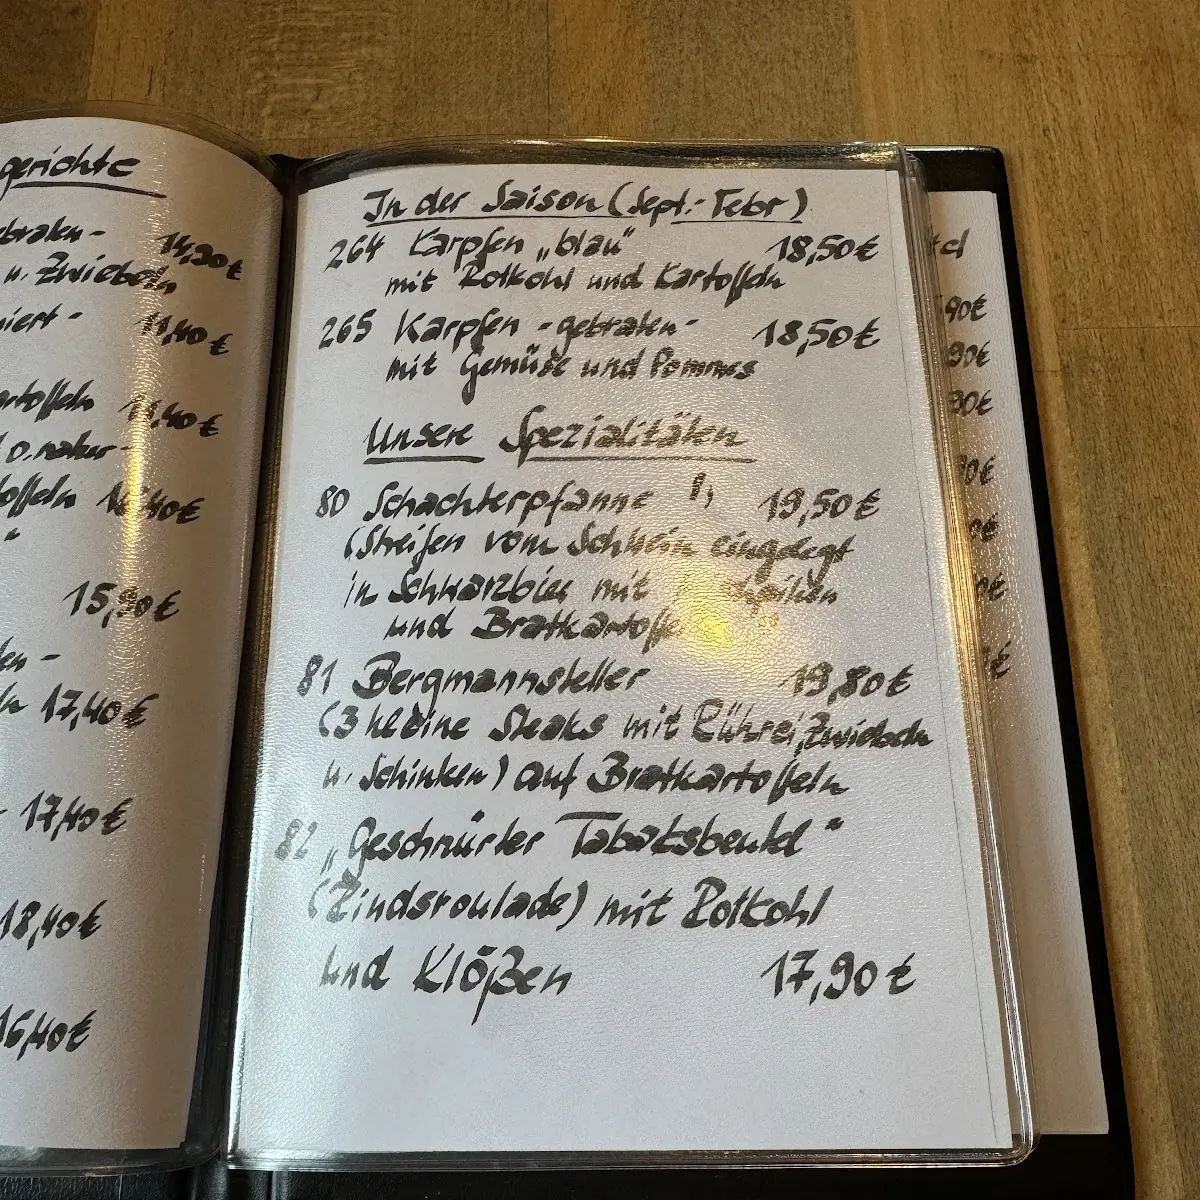 gerichte
braten- 14,90€
u. Zwiebeln
niert- 11,40€
artoffeln 11,40€
o. natur-
toffeln 16,40€
"
15,90€
en-
17,40€
- 17,40€
18,40€
16,40€
In der Saison (Sept.-Febr)
264 Karpfen „blau" 18,50€
mit Rotkohl und Kartoffeln
265 Karpfen -gebraten- 18,50€
mit Gemüse und Pommes
Unsere Spezialitäten
80 Schachterpfanne 1, 19,50€
(Streifen vom Schwein eingelegt
in Schwarzbier mit
und Bratkartoffe
81 Bergmannsteller 19,80€
(3 kleine Steaks mit Rührei, Zwiebeln
u. Schinken) auf Bratkartoffeln
82 „Geschnürter Tabaksbeutel"
(Rindsroulade) mit Rotkohl
und Klößen 17,90€
90€
90€
90€